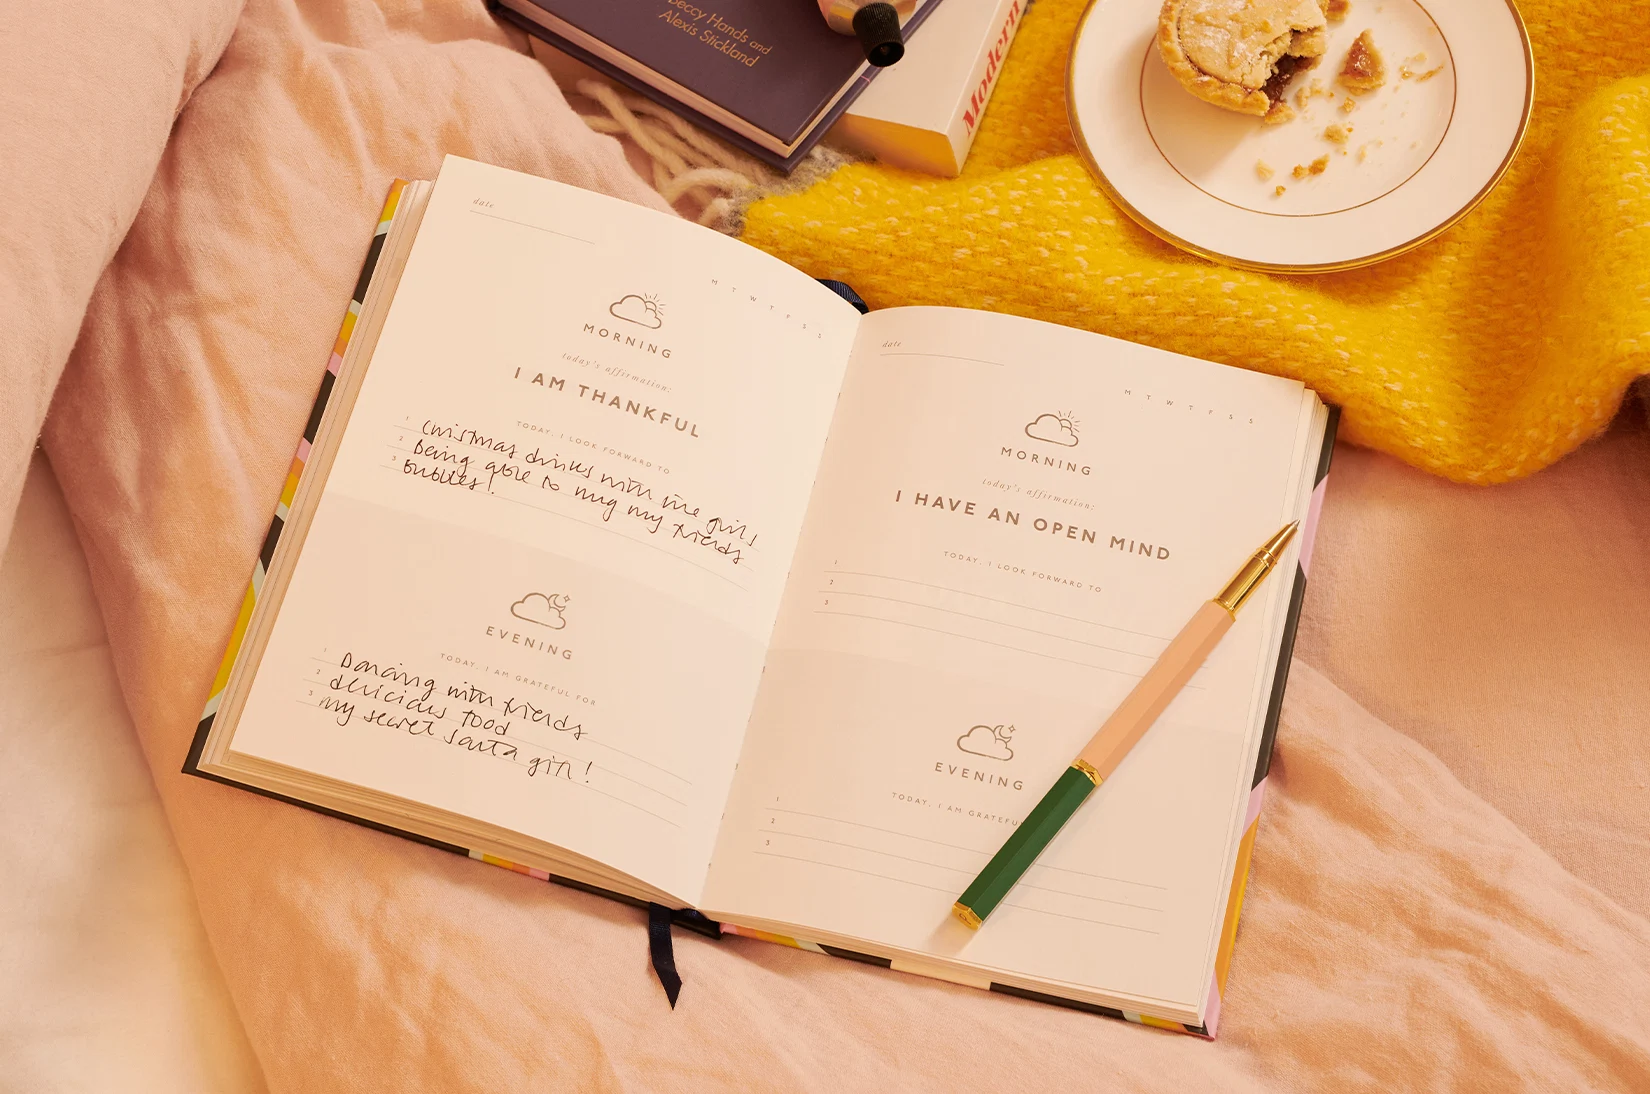 Beccy Hands and
Alexis Stickland
Modern
date
M T W T F S S
MORNING
today's affirmation:
I AM THANKFUL
TODAY, I LOOK FORWARD TO
1 Christmas drinks with the girls
2 Being able to hug my friends
3 Bubbles!
EVENING
TODAY, I AM GRATEFUL FOR
1 Dancing with friends
2 delicious food
3 my secret santa gift!
date
M T W T F S S
MORNING
today's affirmation:
I HAVE AN OPEN MIND
TODAY, I LOOK FORWARD TO
1
2
3
EVENING
TODAY, I AM GRATEFU
1
2
3